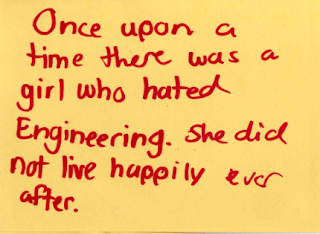 Once upon a
time there was a
girl who hated
Engineering. She did
not live happily ever
after.